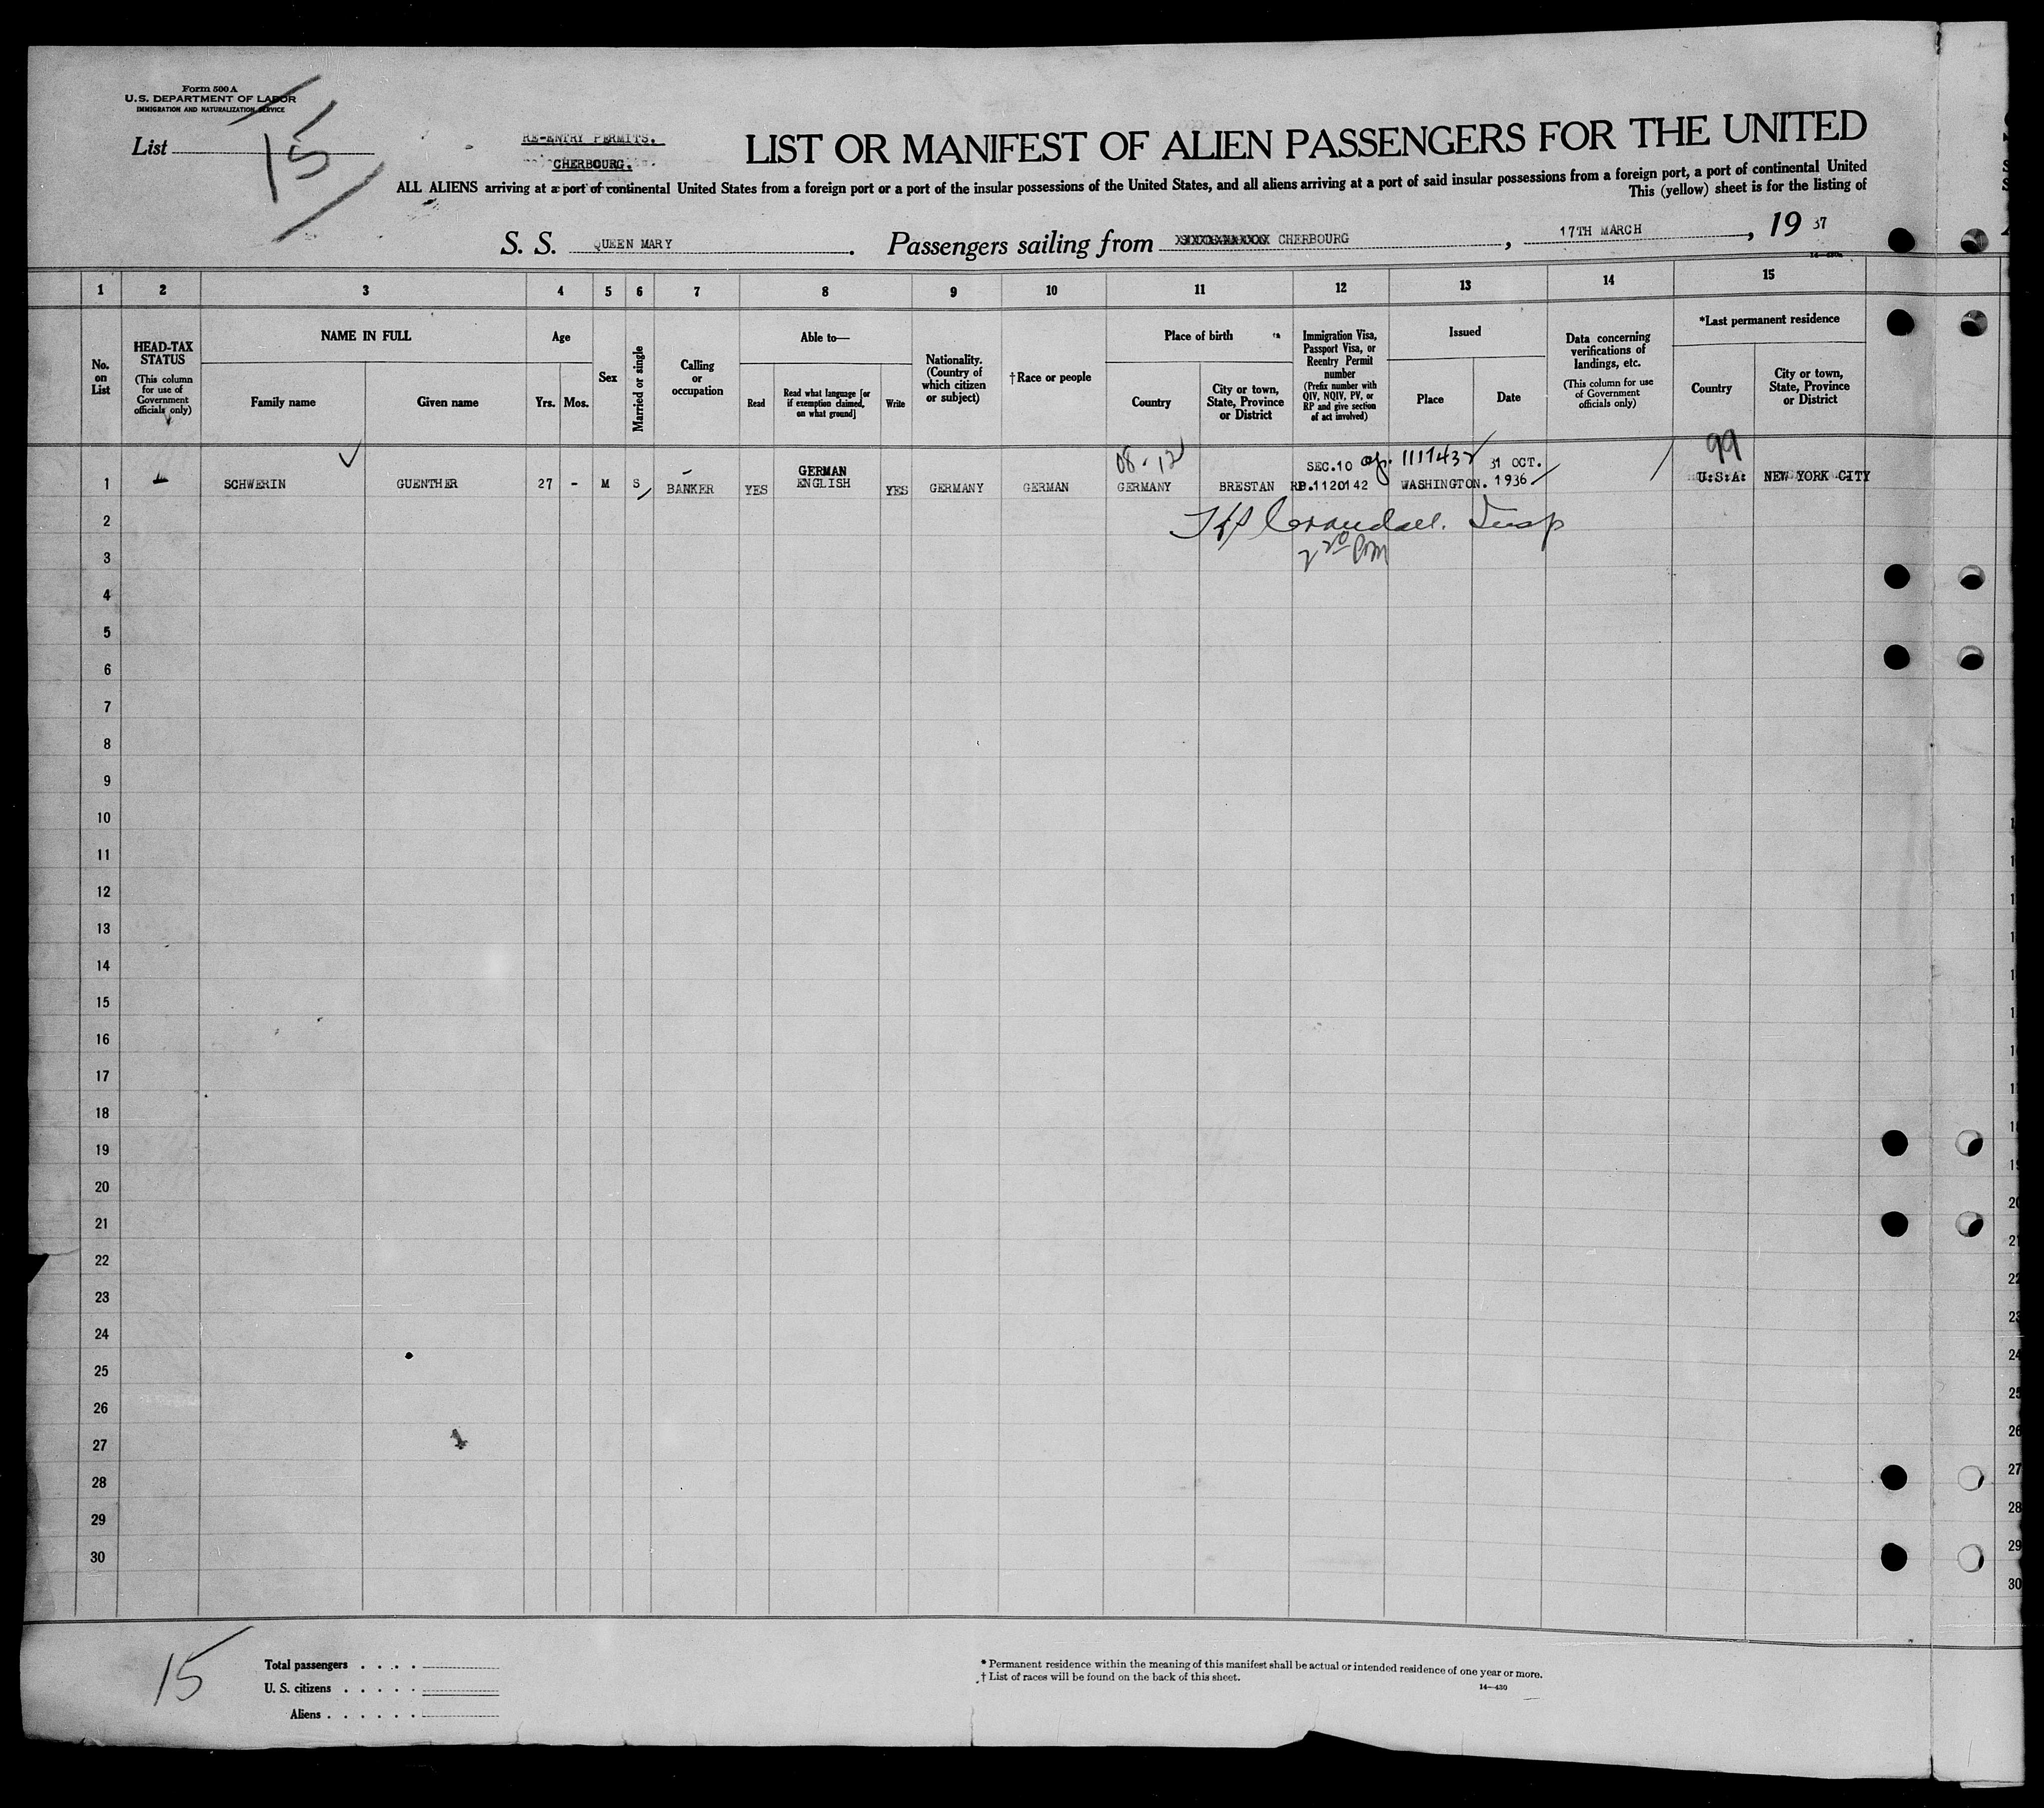 Form 500 A
U.S. DEPARTMENT OF LABOR
IMMIGRATION AND NATURALIZATION SERVICE
List 15
RE-ENTRY PERMITS.
CHERBOURG.
LIST OR MANIFEST OF ALIEN PASSENGERS FOR THE UNITED
ALL ALIENS arriving at a port of continental United States from a foreign port or a port of the insular possessions of the United States, and all aliens arriving at a port of said insular possessions from a foreign port, a port of continental United
This (yellow) sheet is for the listing of
S. S. QUEEN MARY. Passengers sailing from CHERBOURG, 17TH MARCH, 19 37
1 2 3 4 5 6 7 8 9 10 11 12 13 14 15
No. on List
HEAD-TAX STATUS
(This column for use of Government officials only)
NAME IN FULL
Family name
Given name
Age
Yrs.
Mos.
Sex
Married or single
Calling or occupation
Able to—
Read
Read what language [or if exemption claimed, on what ground]
Write
Nationality. (Country of which citizen or subject)
†Race or people
Place of birth
Country
City or town, State, Province or District
Immigration Visa, Passport Visa, or Reentry Permit number
(Prefix number with QIV, NQIV, PV, or RP and give section of act involved)
Issued
Place
Date
Data concerning verifications of landings, etc.
(This column for use of Government officials only)
*Last permanent residence
Country
City or town, State, Province or District
08-12 SEC.10 1117432 31 OCT. 99
1 SCHWERIN GUENTHER 27 - M S BANKER YES GERMAN ENGLISH YES GERMANY GERMAN GERMANY BRESTAN RP.1120142 WASHINGTON. 1936 U.S.A. NEW YORK CITY
2 Crandall. Insp
3 2 20 PM
4
5
6
7
8
9
10
11
12
13
14
15
16
17
18
19
20
21
22
23
24
25
26
27
28
29
30
15
Total passengers
U. S. citizens
Aliens
* Permanent residence within the meaning of this manifest shall be actual or intended residence of one year or more.
† List of races will be found on the back of this sheet.
14—430